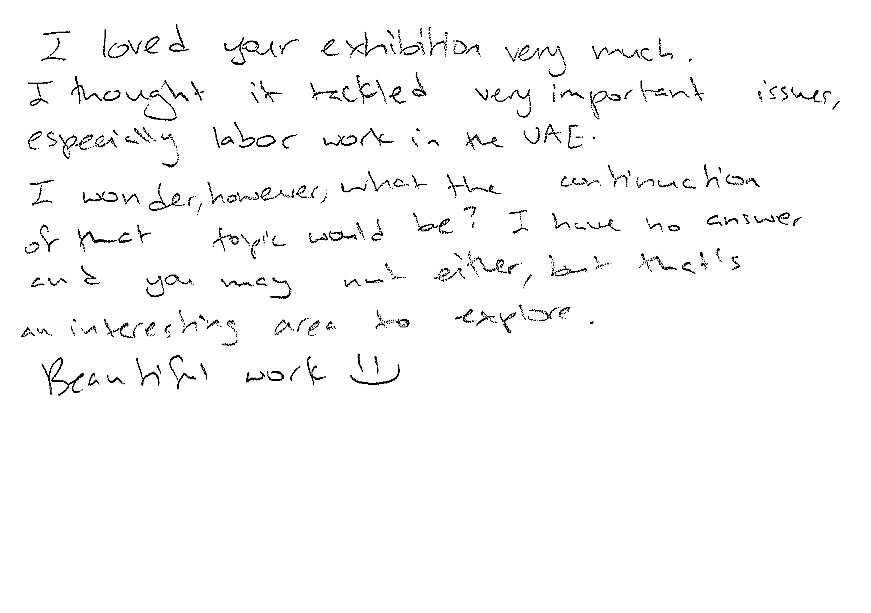 I loved your exhibition very much.
I thought it tackled very important issues,
especially labor work in the UAE.
I wonder, however, what the continuation
of that topic would be? I have no answer
and you may not either, but that's
an interesting area to explore.
Beautiful work